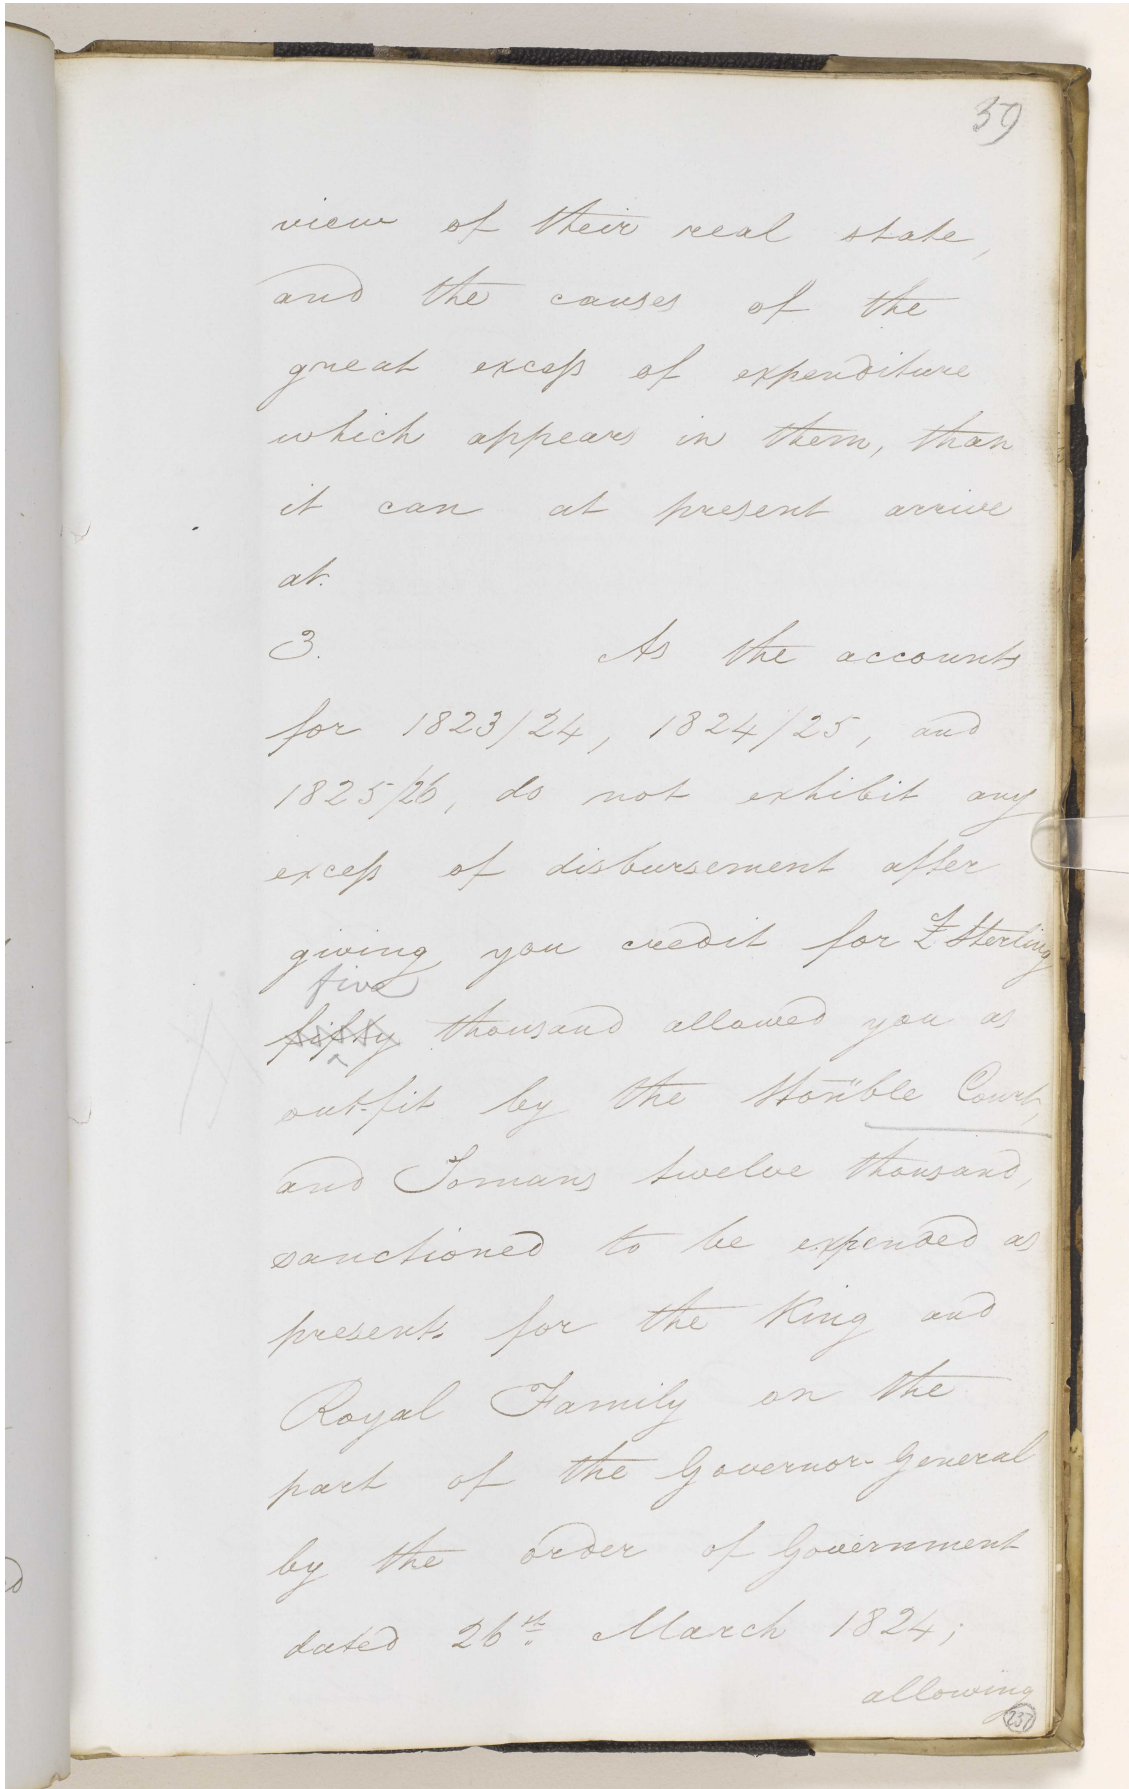 39
view of their real state,
and the causes of the
great excess of expenditure
which appears in them, than
it can at present arrive
at.
3. As the accounts
for 1823/24, 1824/25, and
1825/26, do not exhibit any
excess of disbursement after
giving you credit for £ Sterling
five
fifty thousand allowed you as
out-fit by the Hon'ble Court,
and Tomans twelve thousand,
sanctioned to be expended as
presents for the King and
Royal Family on the
part of the Governor-General
by the order of Government
dated 26th March 1824;
allowing
237